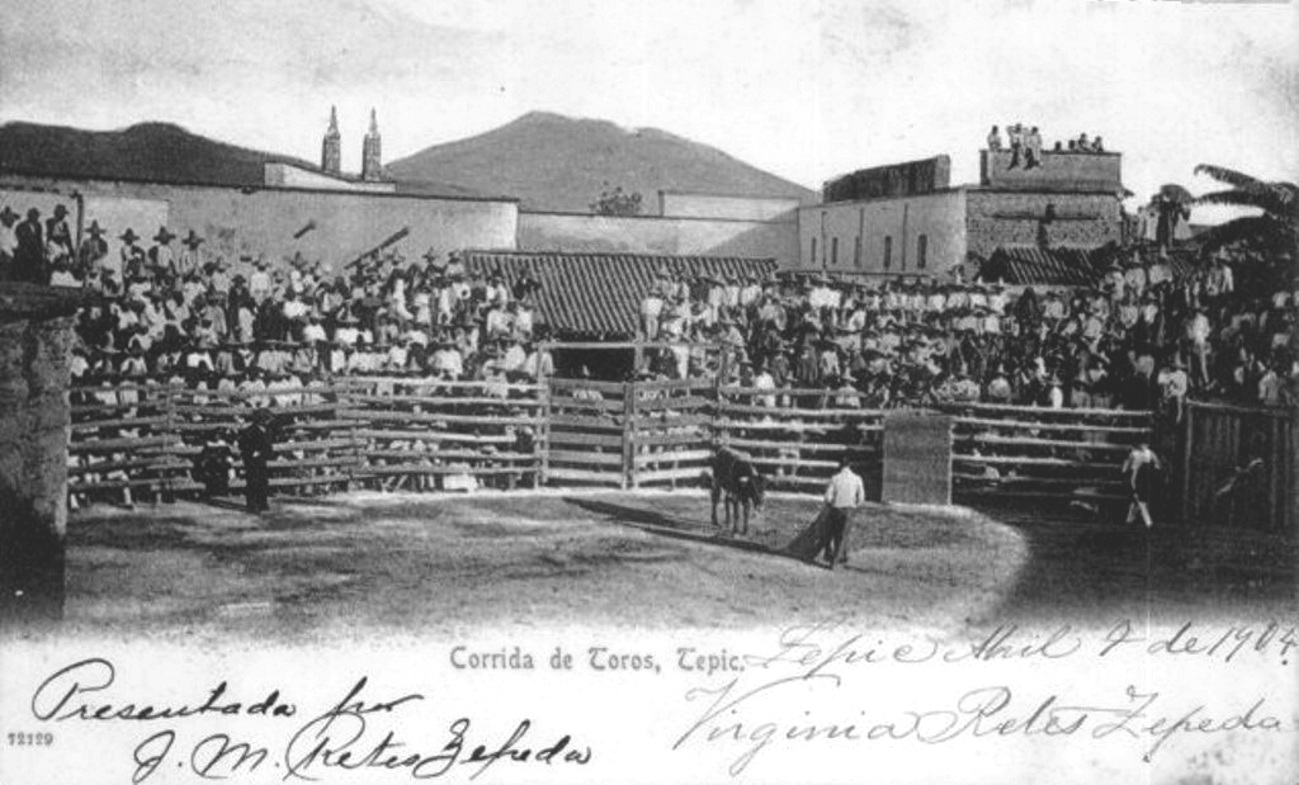 Corrida de Toros, Tepic.
Tepic Abril 7 de 1904.
Virginia Retes Zepeda
Presentada por
J. M. Retes Zepeda
72129